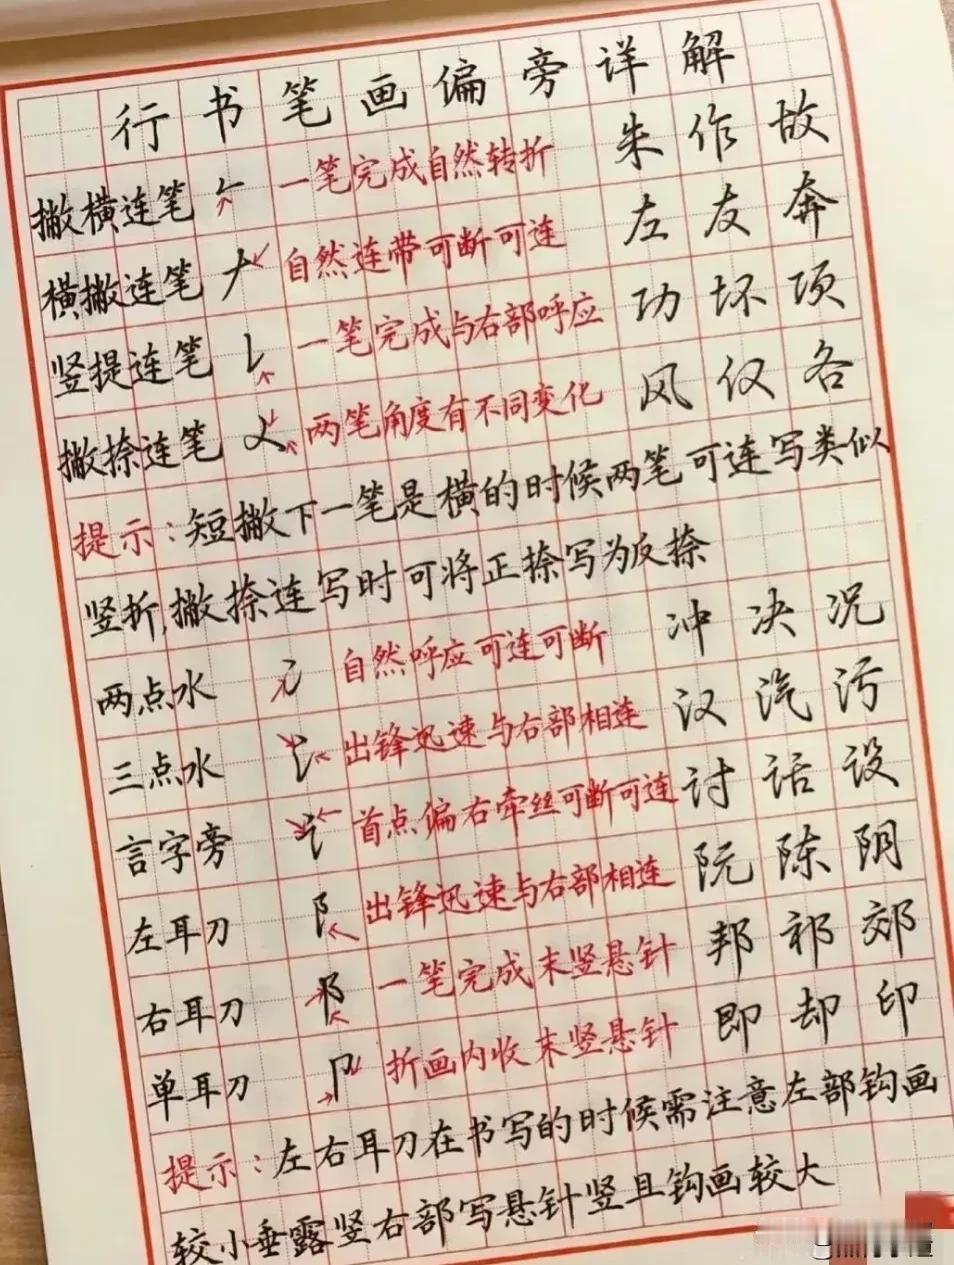 行书笔画偏旁详解
撇横连笔 一笔完成自然转折 朱作故
横撇连笔 自然连带可断可连 左友奔
竖提连笔 一笔完成与右部呼应 功坏项
撇捺连笔 两笔角度有不同变化 风仪各
提示:短撇下一笔是横的时候两笔可连写类似
竖折,撇捺连写时可将正捺写为反捺
两点水 自然呼应可连可断 冲决况
三点水 出锋迅速与右部相连 汉汽污
言字旁 首点偏右牵丝可断可连 讨话设
左耳刀 出锋迅速与右部相连 阮陈阴
右耳刀 一笔完成末竖悬针 邦祁郊
单耳刀 折画内收末竖悬针 即却印
提示:左右耳刀在书写的时候需注意左部钩画
较小垂露竖右部写悬针竖且钩画较大